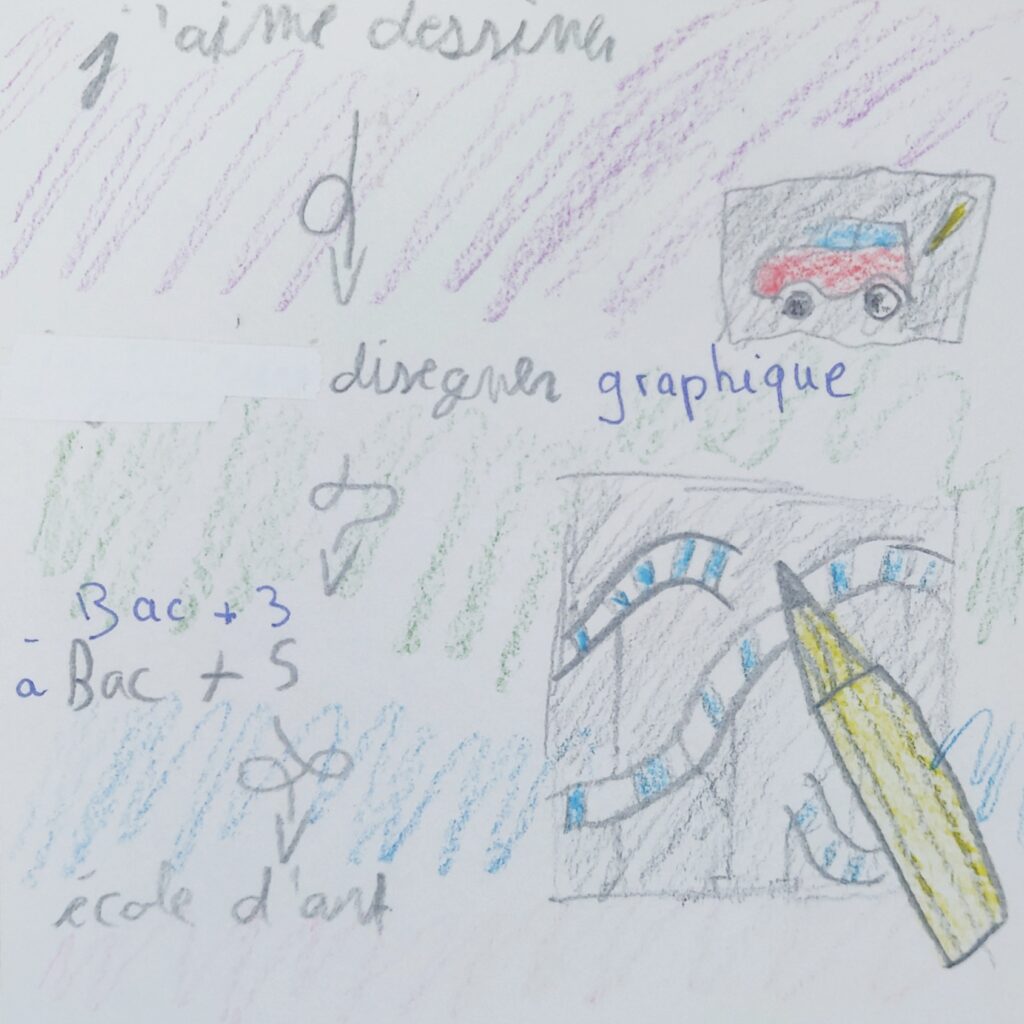 j'aime dessiner
disegner graphique
Bac + 3
à Bac + 5
école d'art